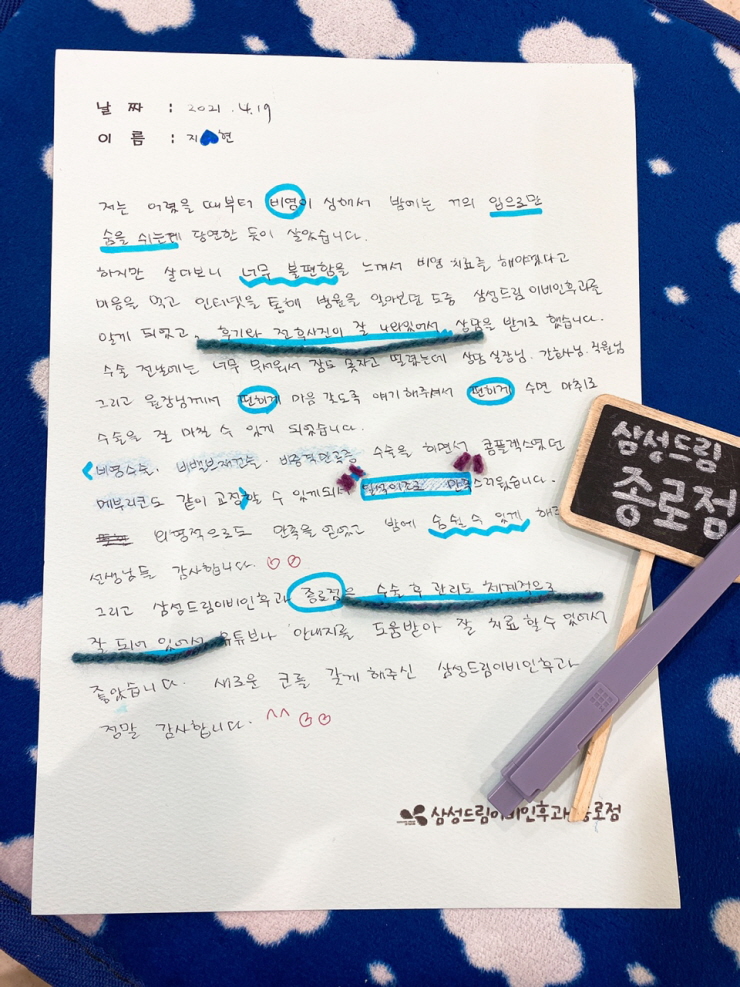 날 짜 : 2021. 4. 19
이 름 : 지 현
저는 어렸을 때부터 비염이 심해서 밤에는 거의 입으로만
숨을 쉬는게 당연한 듯이 살았습니다.
하지만 살다보니 너무 불편함을 느껴서 비염 치료를 해야겠다고
마음을 먹고 인터넷을 통해 병원을 알아보던 도중 삼성드림이비인후과를
알게 되었고, 후기와 전후사진이 잘 나와있어서 상담을 받기로 했습니다.
수술 전날에는 너무 무서워서 잠도 못자고 떨렸는데 상담 실장님, 간호사님, 직원님
그리고 원장님께서 편하게 마음 갖도록 얘기해주셔서 편하게 수면 마취로
수술을 잘 마칠 수 있게 되었습니다.
비염수술, 비밸브재건술, 비중격만곡증 수술을 하면서 콤플렉스였던
메부리코도 같이 교정할 수 있게되서 일석이조로 만족스러웠습니다.
외형적으로도 만족을 얻었고 밤에 숨쉴 수 있게 해
선생님들 감사합니다.
그리고 삼성드림이비인후과 종로점은 수술 후 관리도 체계적으로
잘 되어 있어서 유튜브나 안내지를 도움받아 잘 치료할 수 있어서
좋았습니다. 새로운 코를 갖게 해주신 삼성드림이비인후과
정말 감사합니다. ^^
삼성드림이비인후과 종로점
삼성드림
종로점